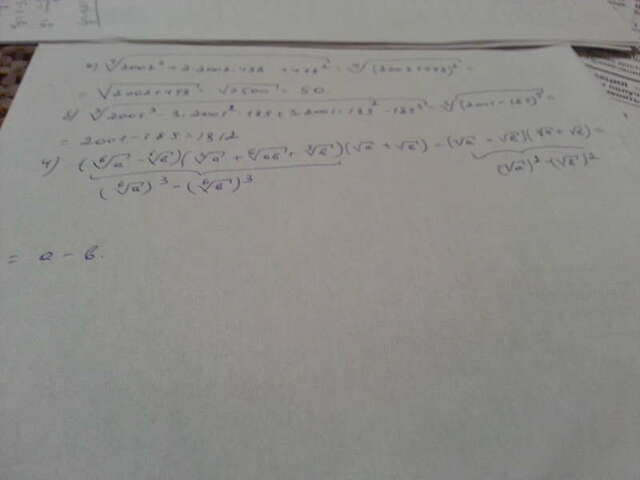 2) ⁴√(2002² + 2·2002·498 + 498²) = ⁴√((2002+498)²) =
= √(2002+498) = √2500 = 50
3) ³√(2001³ - 3·2001²·189 + 3·2001·189² - 189³) = ³√((2001-189)³) =
= 2001-189 = 1812
4) (⁶√a - ⁶√b)(³√a + ⁶√ab + ³√b)(√a + √b) = (√a - √b)(√a + √b) =
(⁶√a)³ - (⁶√b)³ (√a)² - (√b)²
= a - b.